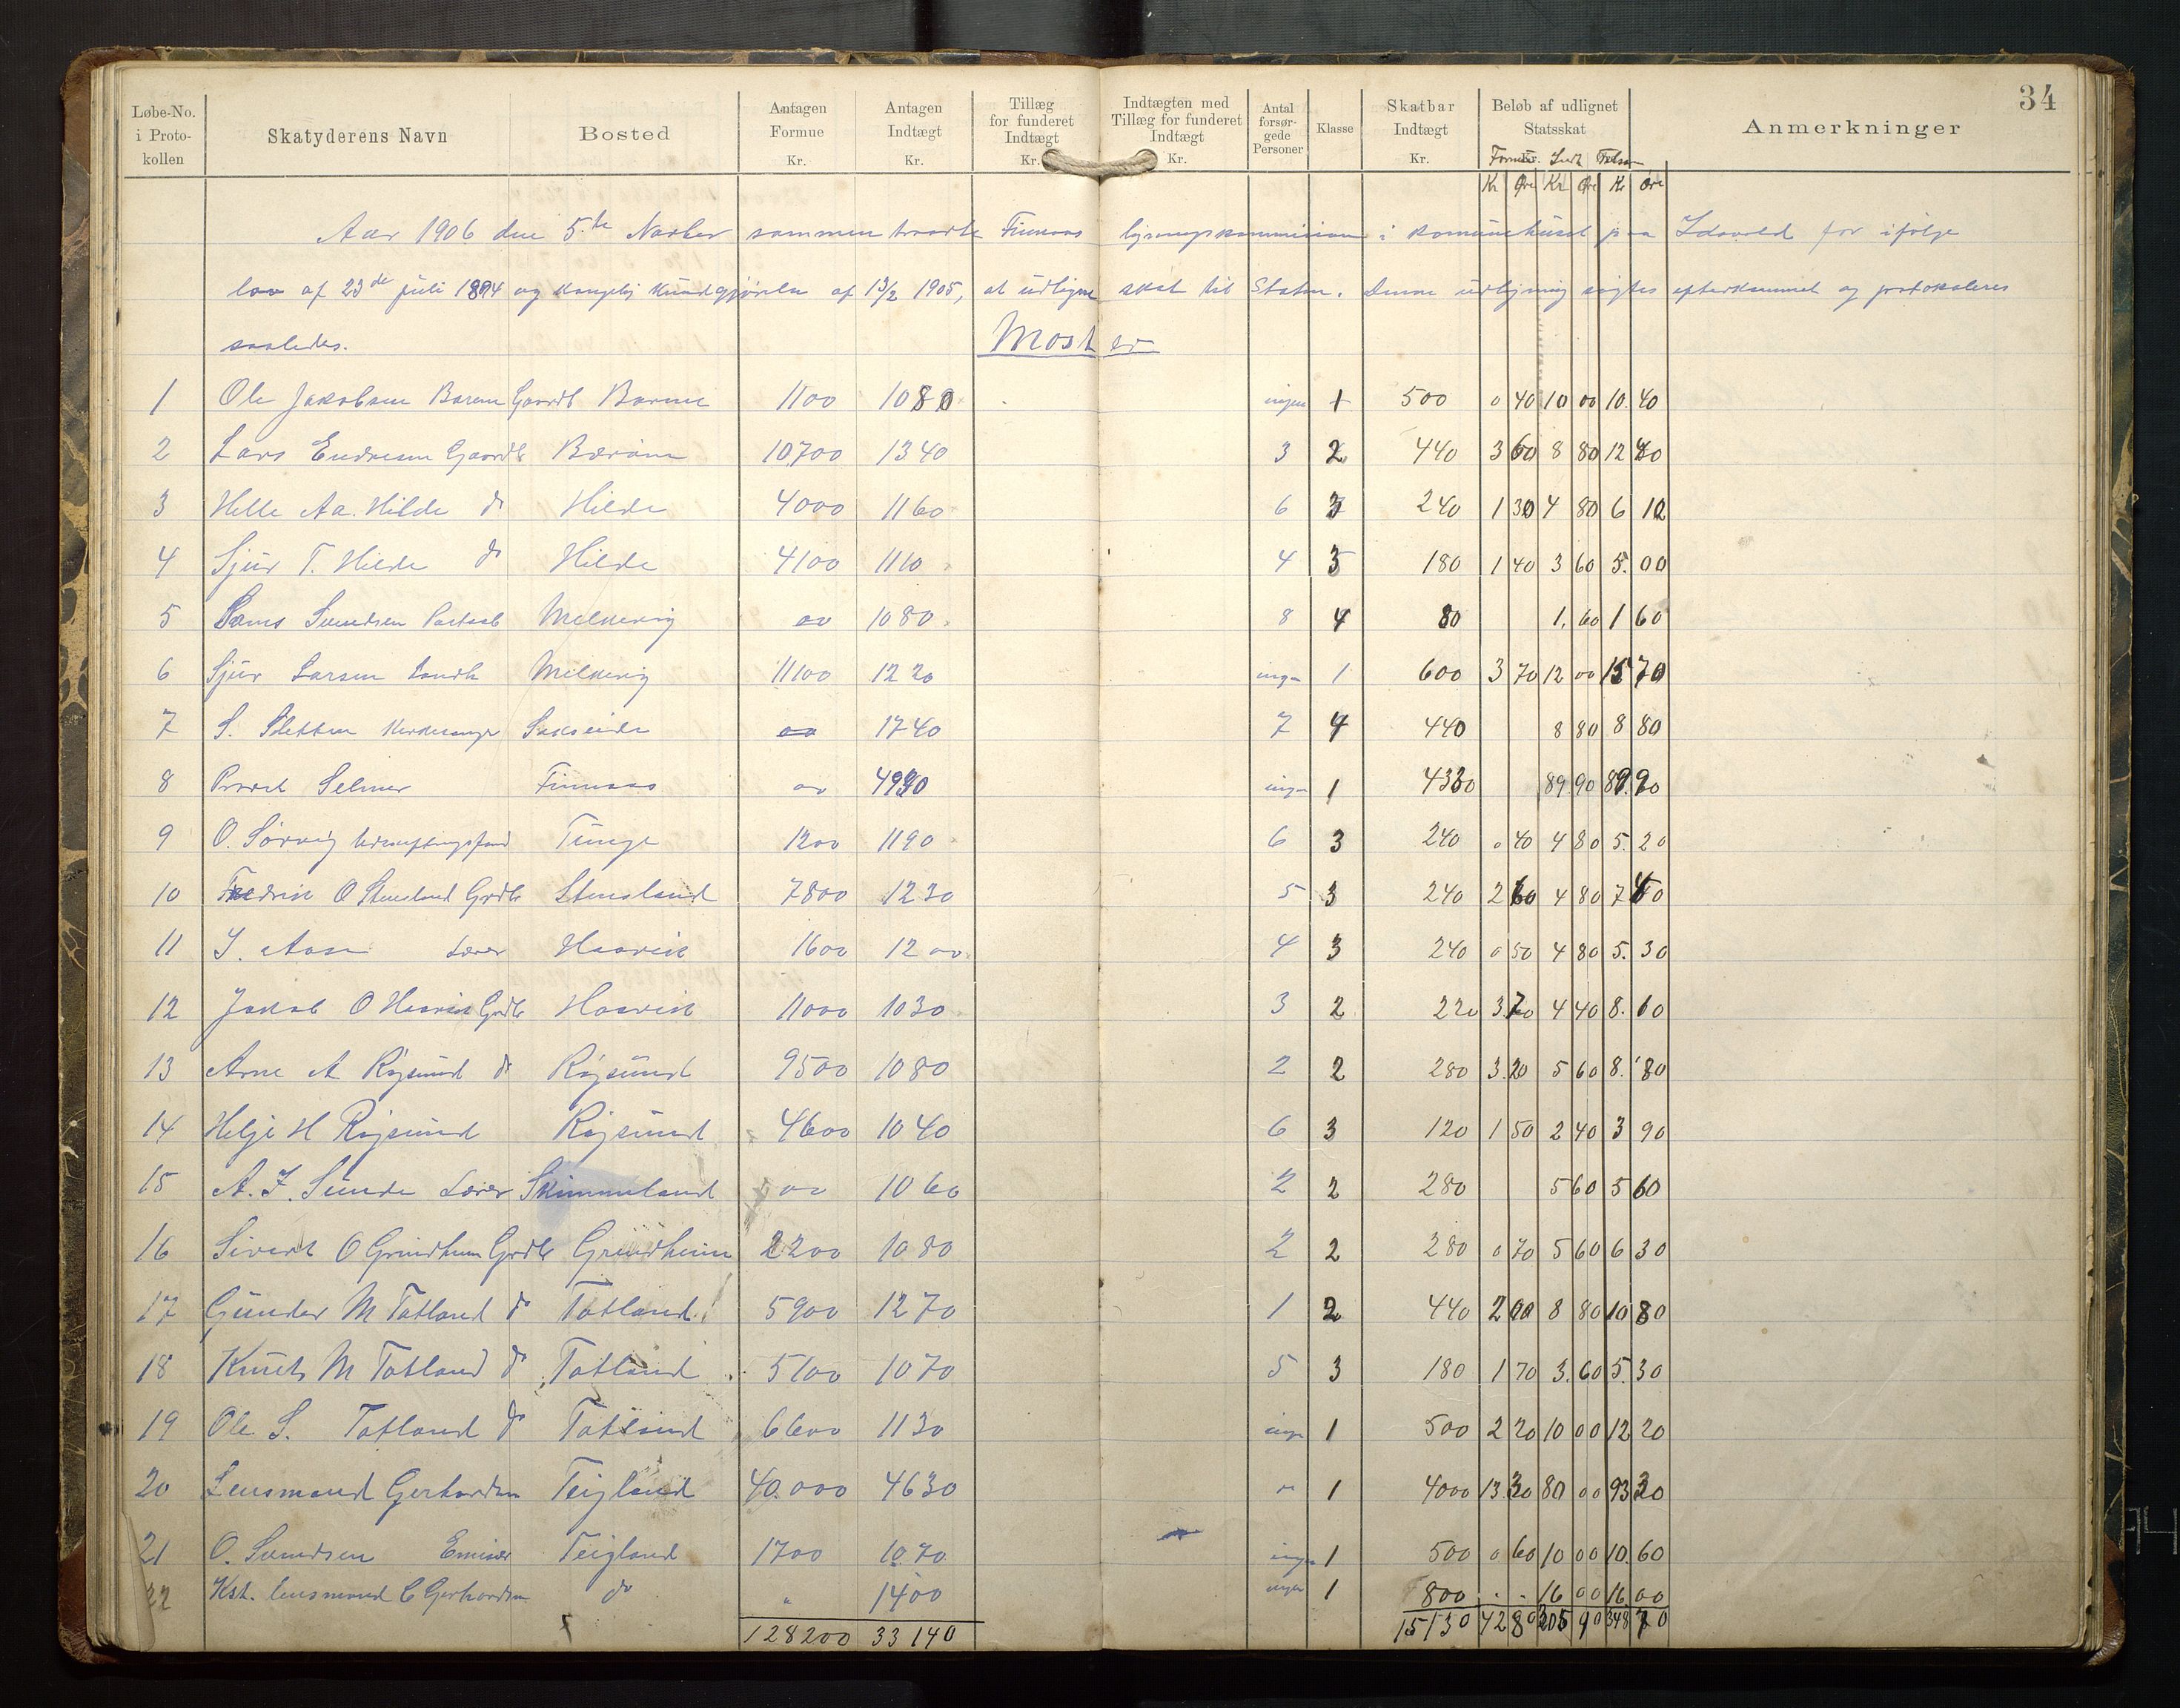 34
Løbe-No. i Proto-kollen | Skatyderens Navn | Bosted | Antagen Formue Kr. | Antagen Indtægt Kr. | Tillæg for funderet Indtægt Kr. | Indtægten med Tillæg for funderet Indtægt Kr. | Antal forsør-gede Personer | Klasse | Skatbar Indtægt Kr. | Beløb af udlignet Statsskat | Anmerkninger
Formue Indt Tilsam
Kr Øre Kr Øre Kr Øre
Aar 1906 den 5.te Novber sammentraadte Finnaas ligningskommission i komunehuset paa Idavold for ifølge
lov af 23de juli 1894 og kongelig Kundgjørelse af 13/2 1905, at udligne skat til Staten. Denne udligning sagtes efterkommet og protokoleres
saaledes.
Moster
1 Ole Jakobsen Barme Gaardb Barme 1100 1080 ingen 1 500 0 40 10 00 10. 40
2 Lars Endresen Gaardb Bærøen 10700 1340 3 2 440 3 60 8 80 12 40
3 Helle Aa. Hilde do Hilde 4000 1160 6 3 240 1 30 4 80 6 10
4 Sjur T. Hilde do Hilde 4100 1110 4 3 180 1 40 3 60 5. 00
5 Svendsen Melkevig 00 1080 8 4 80 1. 60 1 60
6 Sjur Larsen Landh Melkevig 11100 1220 ingen 1 600 3 70 12 00 15 70
7 S. Sletten Kirkesanger Sakseide 00 1740 7 4 440 8 80 8 80
8 Provst Selmer Finnaas 00 4990 ingen 1 4330 89 90 89. 90
9 O. Sørvig Tunge 1200 1190 6 3 240 0 40 4 80 5. 20
10 Fredrik O Stensland Grdb Stensland 7800 1230 5 3 240 2 60 4 80 7 40
11 I. Aase Lærer Haavik 1600 1200 4 3 240 0 50 4 80 5. 30
12 Jakob O Haavik Grdb Haavik 11000 1030 3 2 220 3. 70 4 40 8. 10
13 Arne A Røjsund do Røjsund 9500 1080 2 2 280 3. 20 5 60 8. 80
14 Helje H Røjsund Røjsund 4600 1040 6 3 120 1 50 2 40 3 90
15 A. J. Sunde Lærer Skimmeland 00 1060 2 2 280 5 60 5 60
16 Sivert O Grindheim Grdb Grindheim 2200 1080 2 2 280 0 70 5 60 6 30
17 Gunder M Totland do Totland 5900 1270 1 2 440 2 00 8 80 10 80
18 Knut M Totland do Totland 5100 1070 5 3 180 1 70 3. 60 5. 30
19 Ole S. Totland do Totland 6600 1130 ingen 1 500 2 20 10 00 12 20
20 Lensmand Gerhardsen Teigland 40.000 4630 " 1 4000 13. 30 80 00 93 30
21 O. Svendsen Emisær Teigland 1700 1070 ingen 1 500 0 60 10 00 10. 60
22 Kst. lensmand C Gerhardsen do " 1400 ingen 1 800 . - 16 00 16. 00
128200 33140 15130 42 80 305 90 348 70